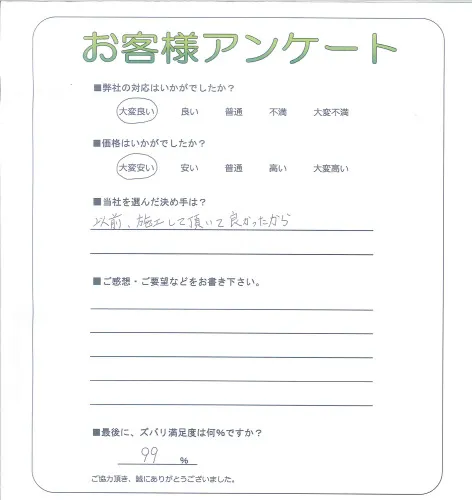 お客様アンケート
■弊社の対応はいかがでしたか？
大変良い 良い 普通 不満 大変不満
■価格はいかがでしたか？
大変安い 安い 普通 高い 大変高い
■当社を選んだ決め手は？
以前、施工して頂いて良かったから
■ご感想・ご要望などをお書き下さい。
■最後に、ズバリ満足度は何%ですか？
99 %
ご協力頂き、誠にありがとうございました。